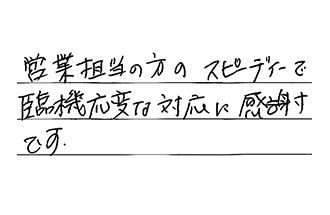 営業担当の方のスピーディーで
臨機応変な対応に感謝す
です.